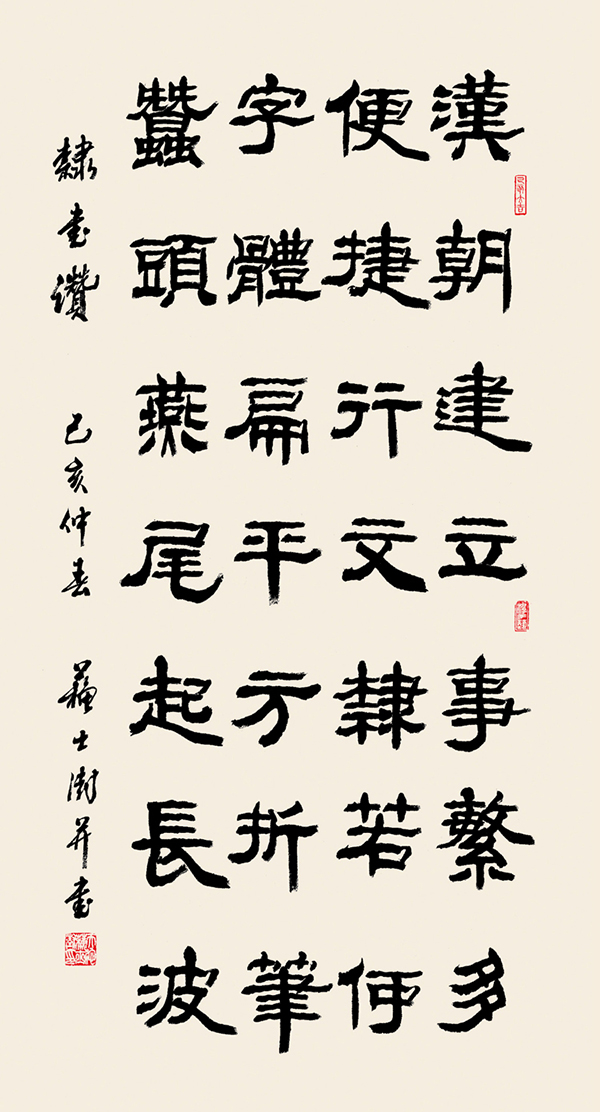 漢朝建立事繫多
便捷行文隸若何
字體扁平方折筆
蠶頭燕尾起長波
隸書讚 己亥仲春 蘇士澍并書